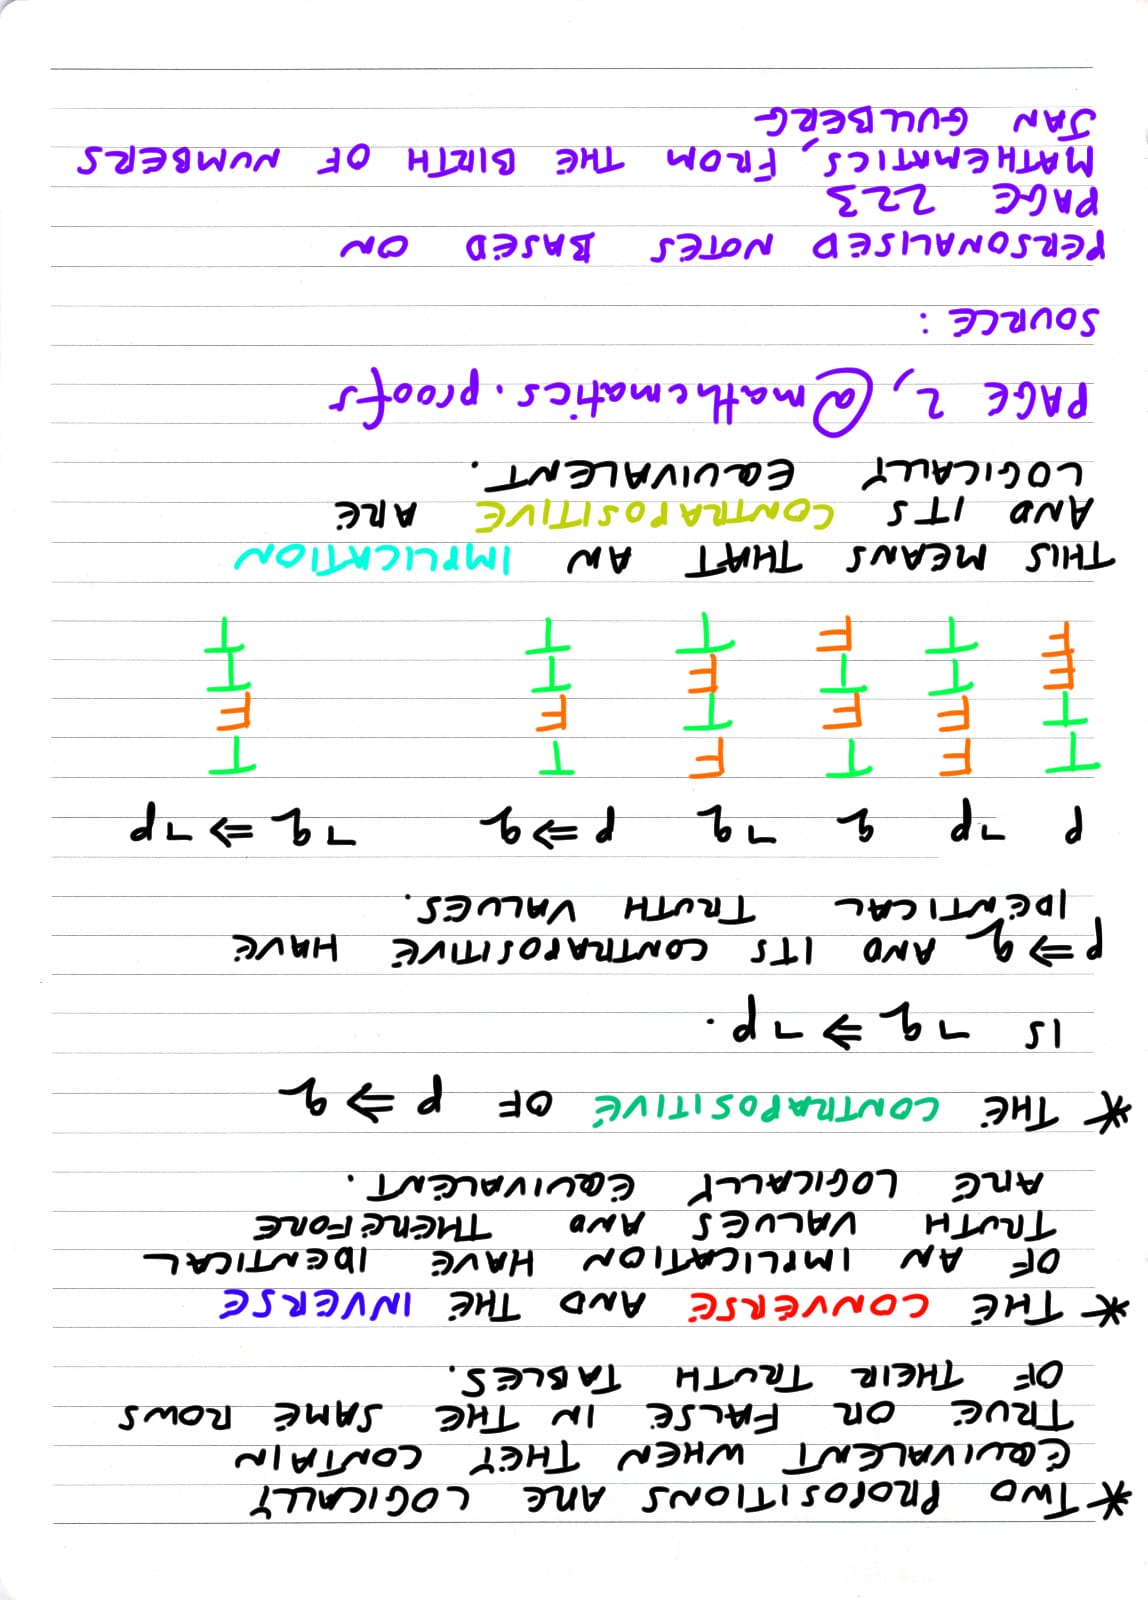 * TWO PROPOSITIONS ARE LOGICALLY
EQUIVALENT WHEN THEY CONTAIN
TRUE OR FALSE IN THE SAME ROWS
OF THEIR TRUTH TABLES.
* THE CONVERSE AND THE INVERSE
OF AN IMPLICATION HAVE IDENTICAL
TRUTH VALUES AND THEREFORE
ARE LOGICALLY EQUIVALENT.
* THE CONTRAPOSITIVE OF p ⇒ q
IS ¬q ⇒ ¬p.
p ⇒ q AND ITS CONTRAPOSITIVE HAVE
IDENTICAL TRUTH VALUES.
p ¬p q ¬q p ⇒ q ¬q ⇒ ¬p
T F T F T T
T F F T F F
F T T F T T
F T F T T T
THIS MEANS THAT AN IMPLICATION
AND ITS CONTRAPOSITIVE ARE
LOGICALLY EQUIVALENT.
PAGE 2, @mathematics.proofs
SOURCE:
PERSONALISED NOTES BASED ON
PAGE 223
MATHEMATICS, FROM THE BIRTH OF NUMBERS
JAN GULLBERG